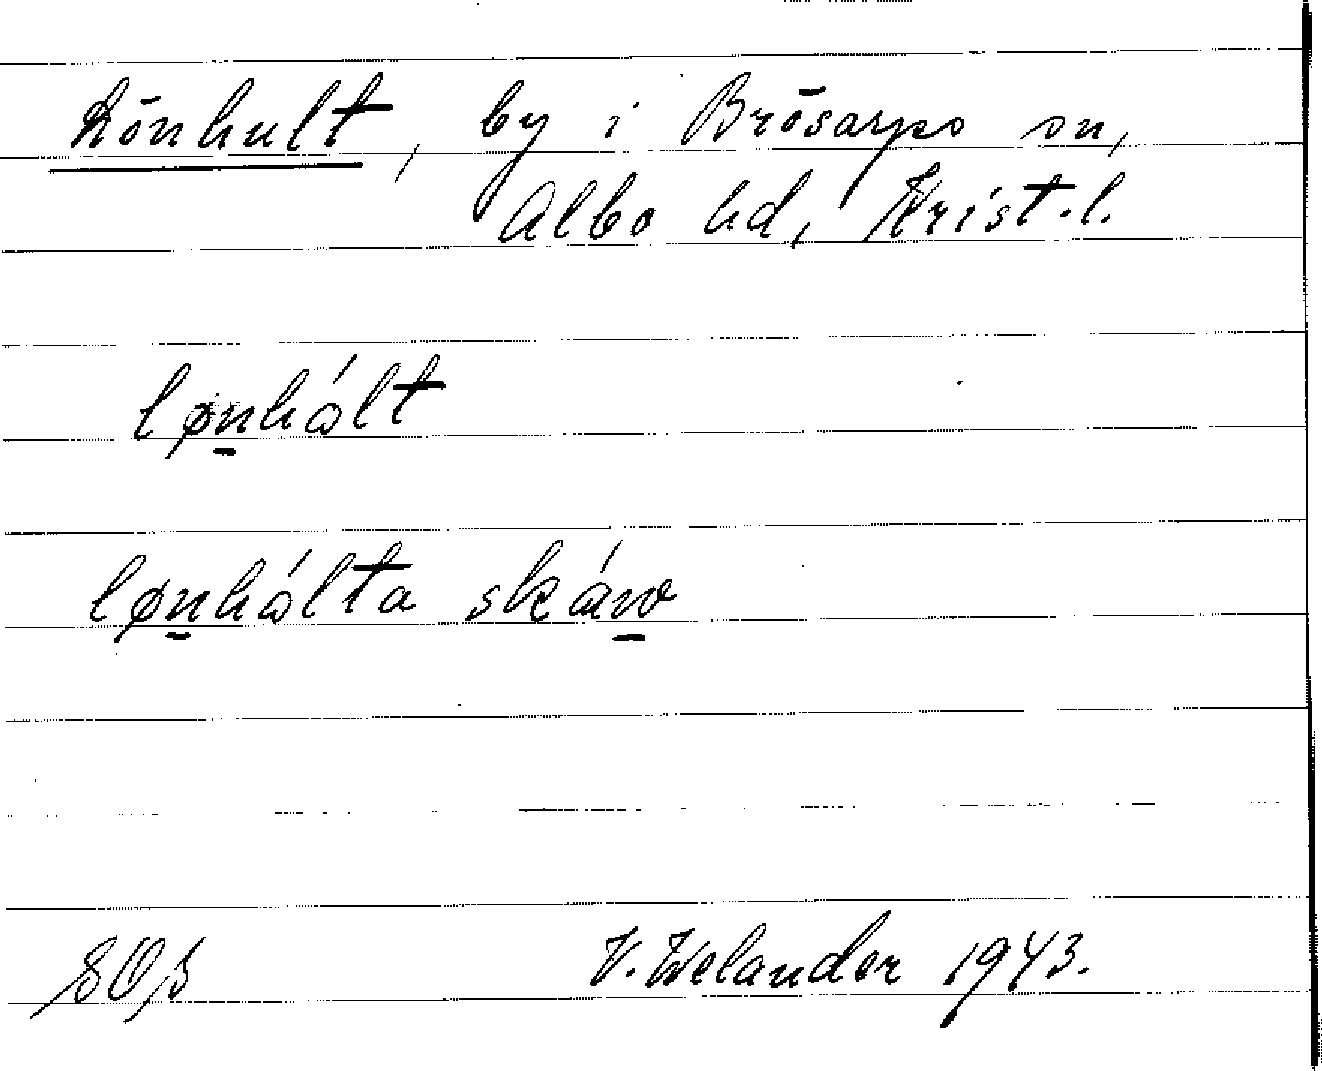 Lönhult, by i Brösarps sn,
Albo hd, Krist.l.
lønhålt
lønhålta skáw
V. Welander 1943.